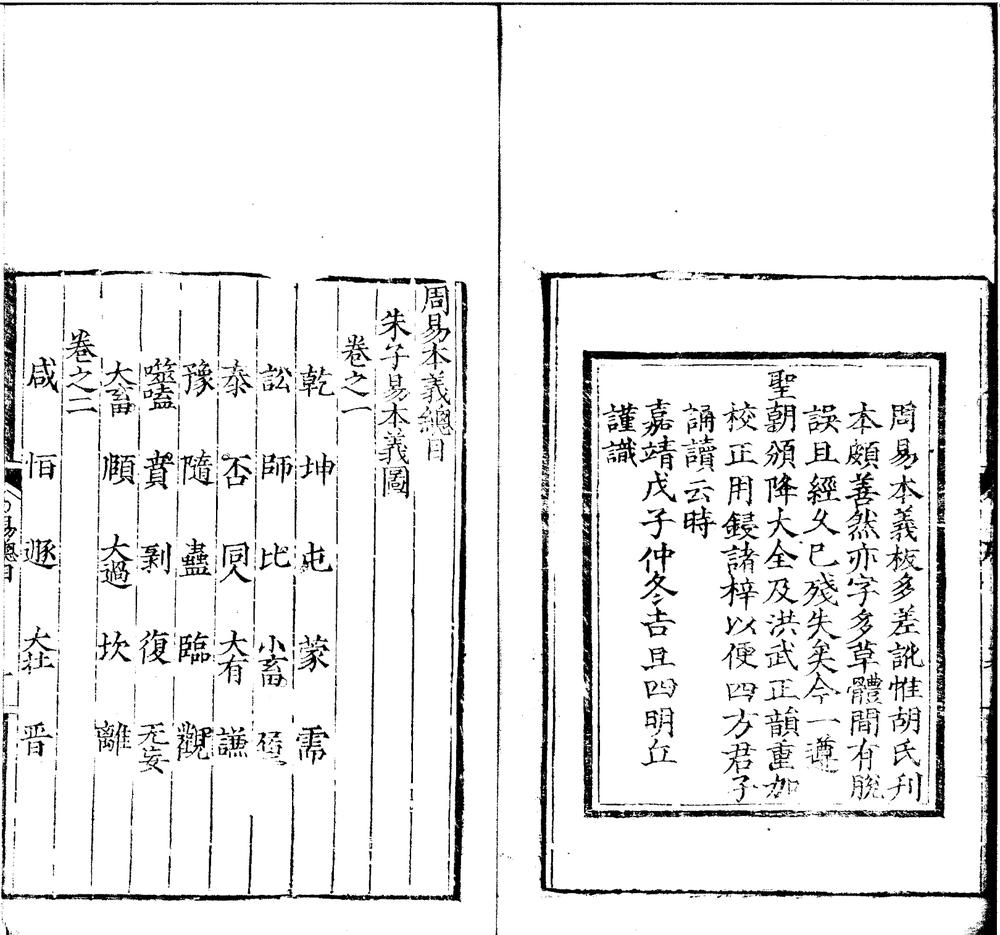 周易本義板多差訛惟胡氏刋
本頗善然亦字多草體間有脫
誤且經乆已殘失矣今一遵
聖朝頒降大全及洪武正韻重加
校正用鋟諸梓以便四方君子
誦讀云時
嘉靖戊子仲冬吉旦四明丘
謹識
周易本義總目
朱子易本義圖
卷之一
乾 坤 屯 蒙 需
訟 師 比 小畜 履
泰 否 同人 大有 謙
豫 隨 蠱 臨 觀
噬嗑 賁 剥 復 无妄
大畜 頤 大過 坎 離
卷之二
咸 恒 遯 大壯 晋
易總目